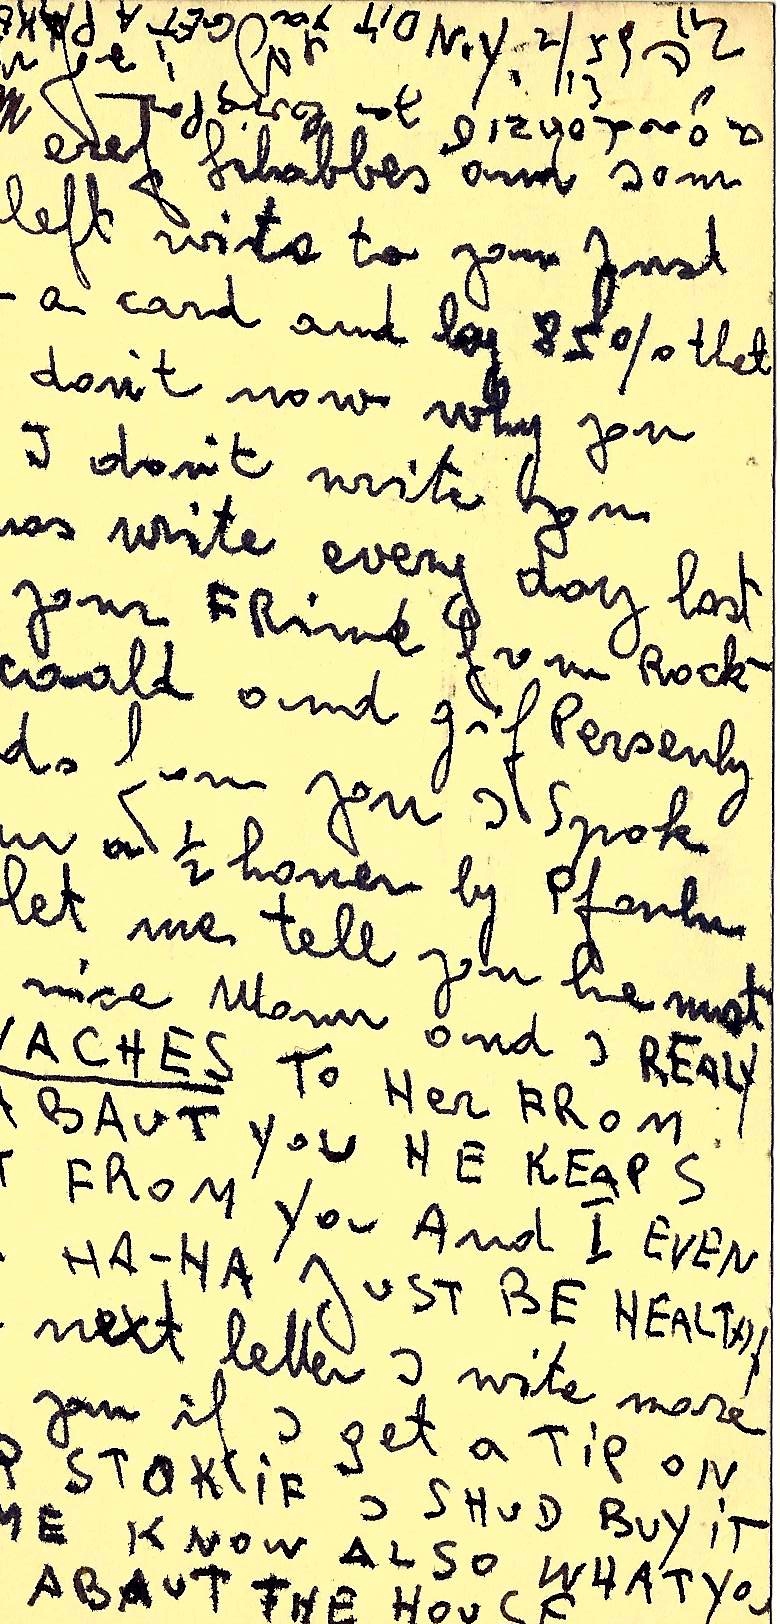 DIT you GET A PAK
N.Y. 2/13/59
eref Schabbes and som
left write to you Just
a card and lay 85% thet
don't now why you
I don't write you
was write every day last
your FRind from Rock-
could and gif Persenly
ds from you I Spok
a 1/2 houer by
let me tell you he must
nice Mann and I REALY
VACHES TO Her FROM
ABAUT you HE KEAPS
T FROM you And I EVEN
HA-HA JUST BE HEALTHY
next letter I write more
you if I get a TIP ON
P STOK IF I SHUD BUY IT
ME KNOW ALSO WHAT YOU
ABAUT THE HOUSE